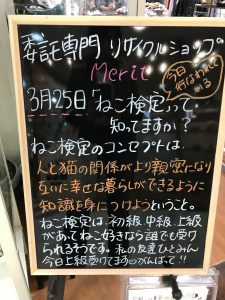 委託専門 リサイクルショップ
Merit
今日
行なわれて
いる
3月25日「ねこ検定」って
知ってますか?
ねこ検定のコンセプトは、
人と猫の関係がより親密になり
互いに幸せな暮らしができるように
知識を身につけようということ。
ねこ検定は、初級 中級 上級
があってねこ好きなら誰でも受け
られるそうです。私の友達もとみん
今日上級受けてます がんばって!!